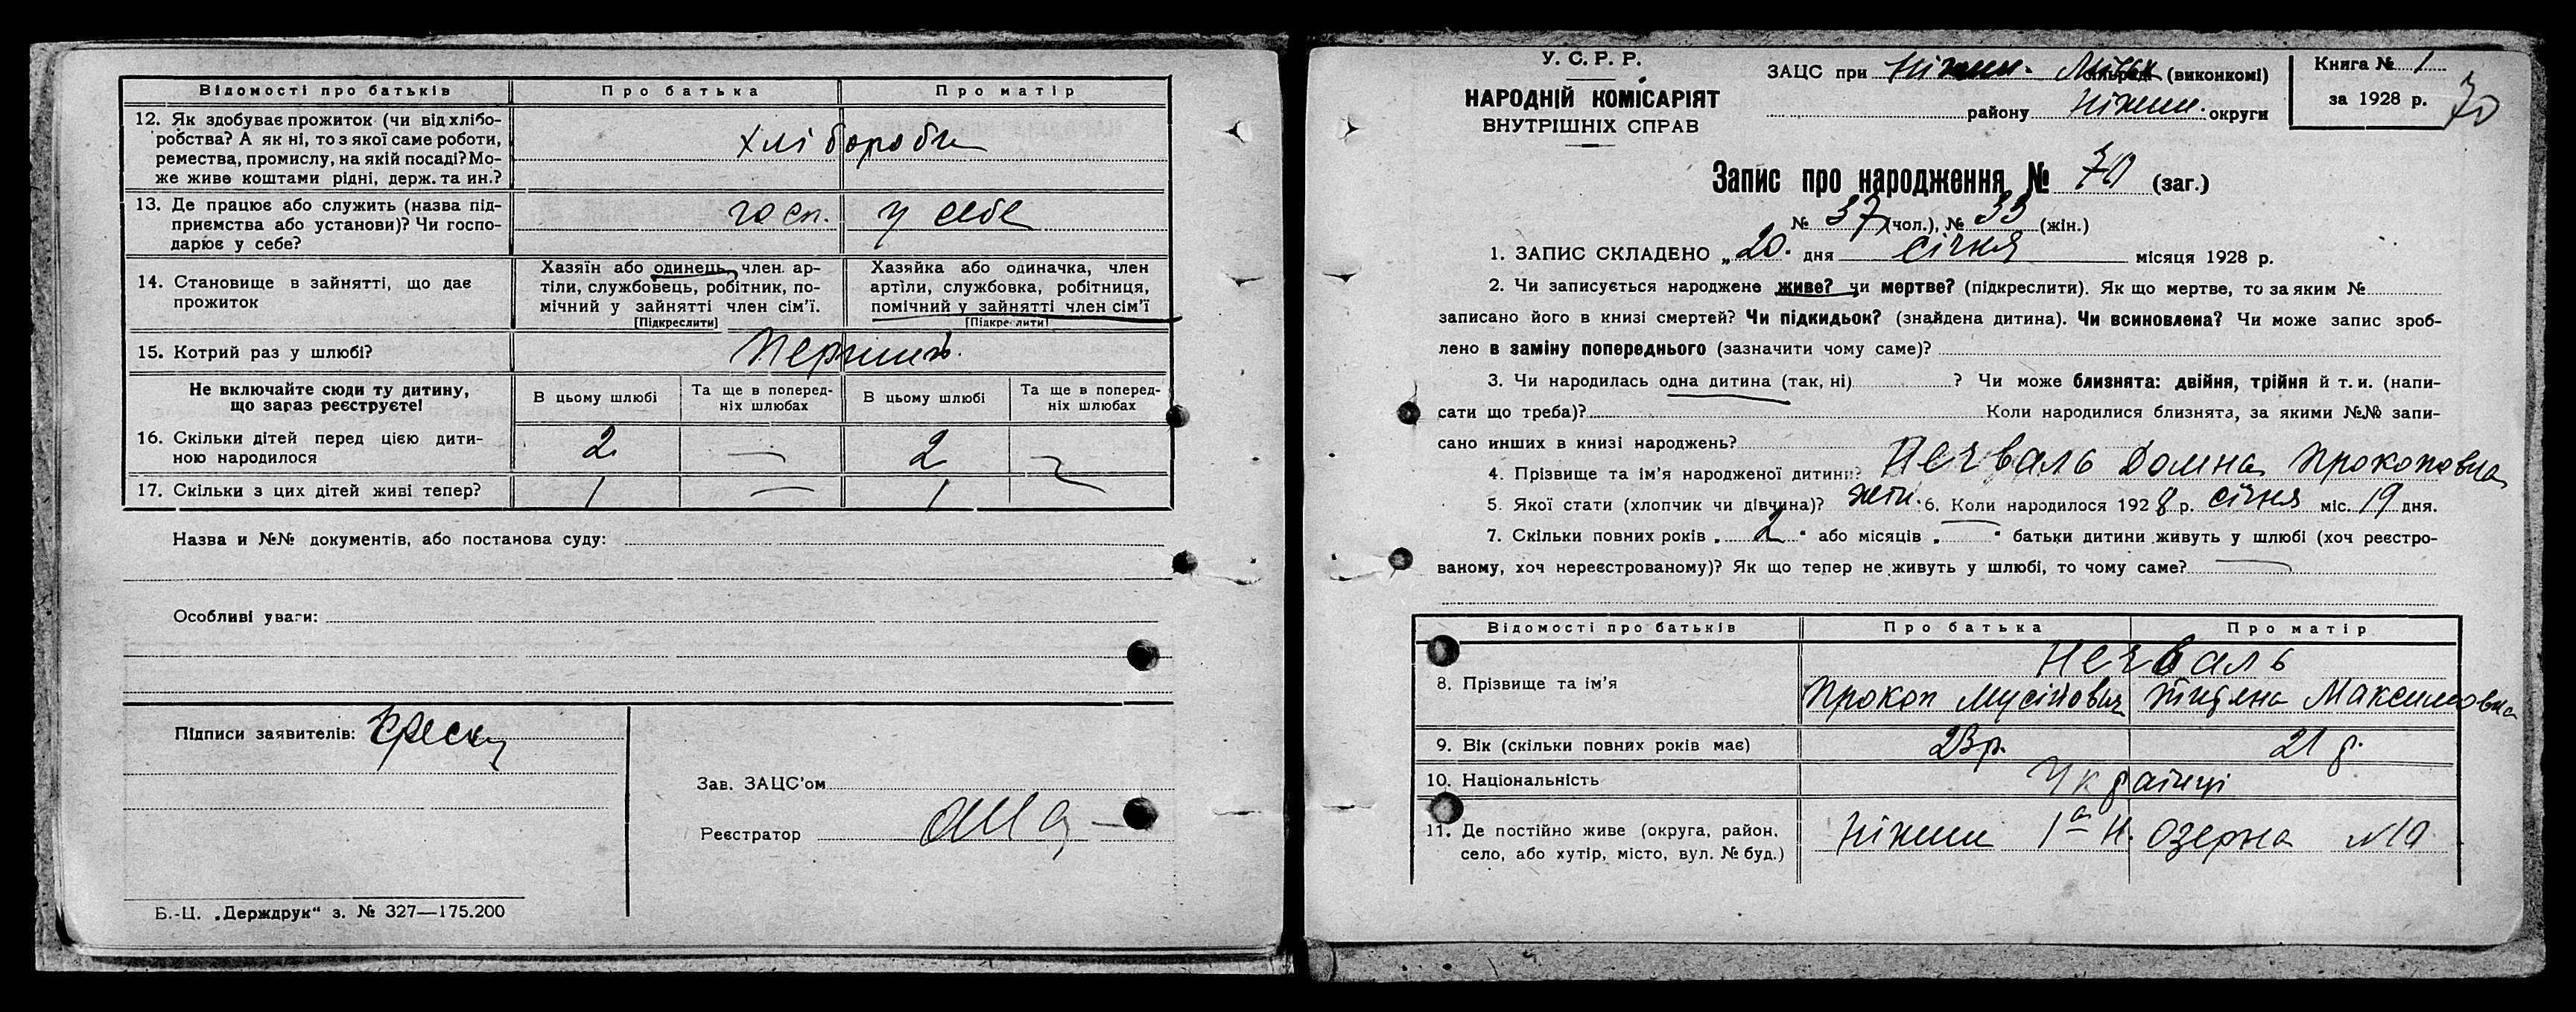 Відомості про батьків Про батька Про матір
12. Як здобуває прожиток (чи від хлібо-
робства? А як ні, то з якої саме роботи,
ремества, промислу, на якій посаді? Мо-
же живе коштами рідні, держ. та ин.?
хлібороби
13. Де працює або служить (назва під-
приємства або установи)? Чи госпо-
дарює у себе?
госп. у себе
14. Становище в зайнятті, що дає
прожиток
Хазяїн або одинець, член ар-
тіли, службовець, робітник, по-
мічний у зайнятті член сім'ї.
[Підкреслити]
Хазяйка або одиначка, член
артіли, службовка, робітниця,
помічний у зайнятті член сім'ї
[Підкреслити]
15. Котрий раз у шлюбі? Перший.
Не включайте сюди ту дитину,
що зараз реєструєте!
В цьому шлюбі
Та ще в поперед-
ніх шлюбах
В цьому шлюбі
Та ще в поперед-
ніх шлюбах
16. Скільки дітей перед цією дити-
ною народилося
2 — 2 —
17. Скільки з цих дітей живі тепер? 1 — 1 —
Назва и №№ документів, або постанова суду:
Особливі уваги:
Підписи заявителів:
Зав. ЗАЦС'ом
Реєстратор
Б.-Ц. „Держдрук“ з. № 327—175.200
У. С. Р. Р.
НАРОДНІЙ КОМІСАРІЯТ
ВНУТРІШНІХ СПРАВ
ЗАЦС при Ніжин. (виконкомі)
району Ніжин. округи
Книга № 1
за 1928 р.
70
Запис про народження № 70 (заг.)
№ 37 (чол.), № 33 (жін.)
1. ЗАПИС СКЛАДЕНО „20. дня січня місяця 1928 р.
2. Чи записується народжене живе? чи мертве? (підкреслити). Як що мертве, то за яким №
записано його в книзі смертей? Чи підкидьок? (знайдена дитина). Чи всиновлена? Чи може запис зроб-
лено в заміну попереднього (зазначити чому саме)?
3. Чи народилась одна дитина (так, ні) ? Чи може близнята: двійня, трійня й т. и. (напи-
сати що треба)? Коли народилися близнята, за якими №№ запи-
сано инших в книзі народжень?
4. Прізвище та ім'я народженої дитини? Нечваль Домна Прокоповна
5. Якої стати (хлопчик чи дівчина)? жін. 6. Коли народилося 1928 р. січня міс. 19 дня.
7. Скільки повних років „ 2 “ або місяців „ “ батьки дитини живуть у шлюбі (хоч реєстро-
ваному, хоч нереєстрованому)? Як що тепер не живуть у шлюбі, то чому саме? —
Відомості про батьків Про батька Про матір
Нечваль
8. Прізвище та ім'я
Прокоп Мусійович Титяна Максимовна
9. Вік (скільки повних років має) 23 р. 21 р.
10. Національність Українці
11. Де постійно живе (округа, район,
село, або хутір, місто, вул. № буд.)
Ніжин 1а Н. Озерна №10